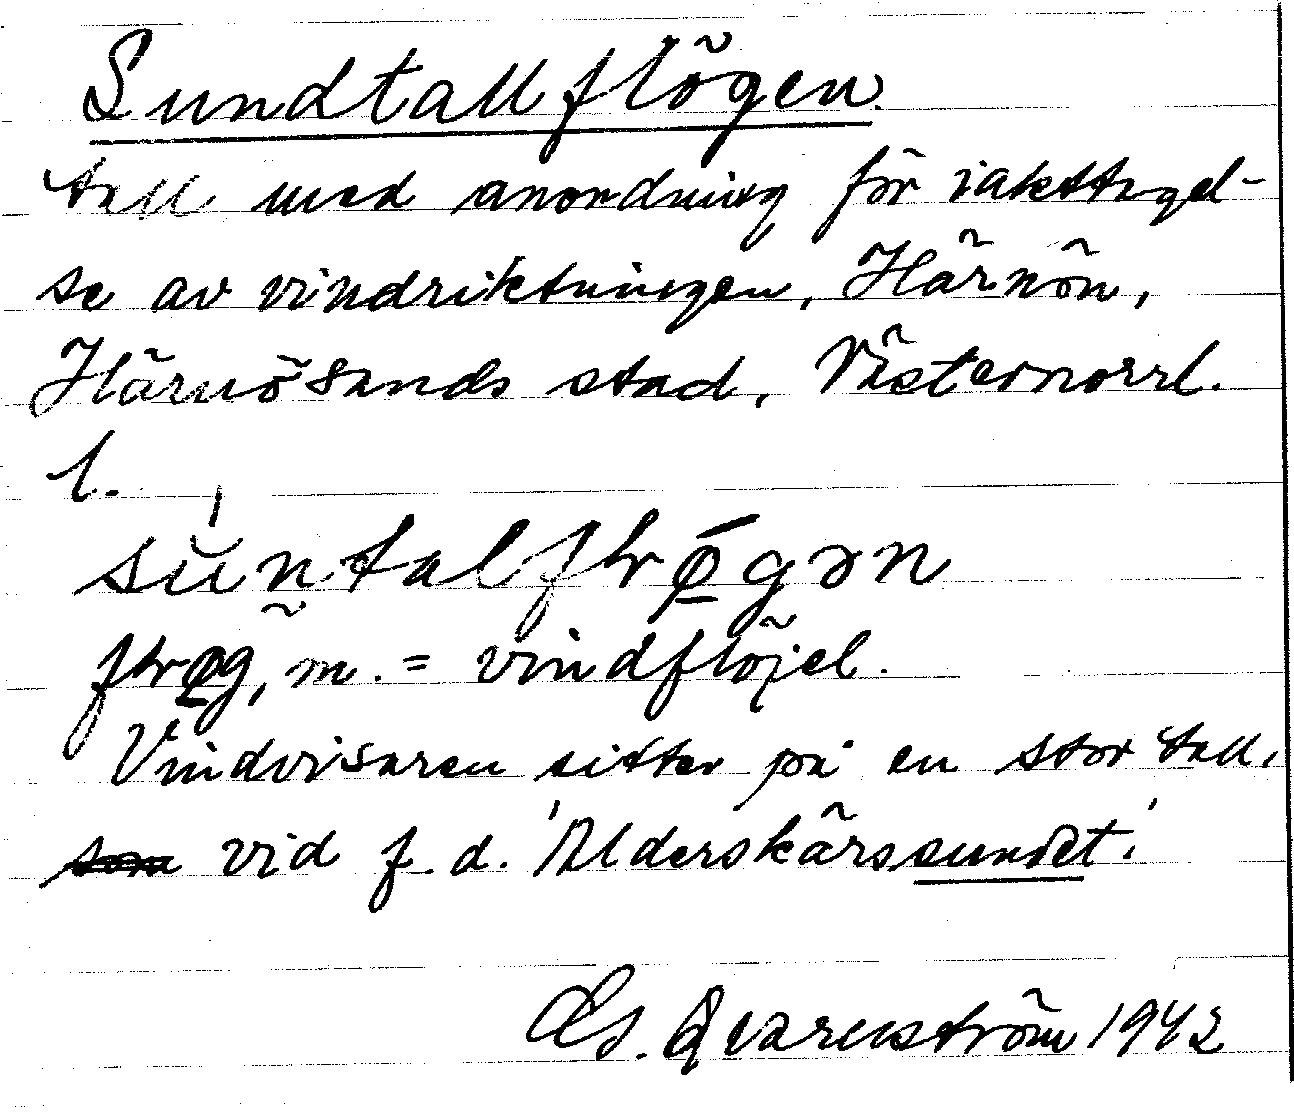 Sundtallflögen.
tall med anordning för iakttagel-
se av vindriktningen, Härnön,
Härnösands stad, Västernorrl.
l.
vindflöjel.
Vindvisaren sitter på en stor tall,
som vid f. d. 'Alderskärssundet.'
Qvarenström 1942